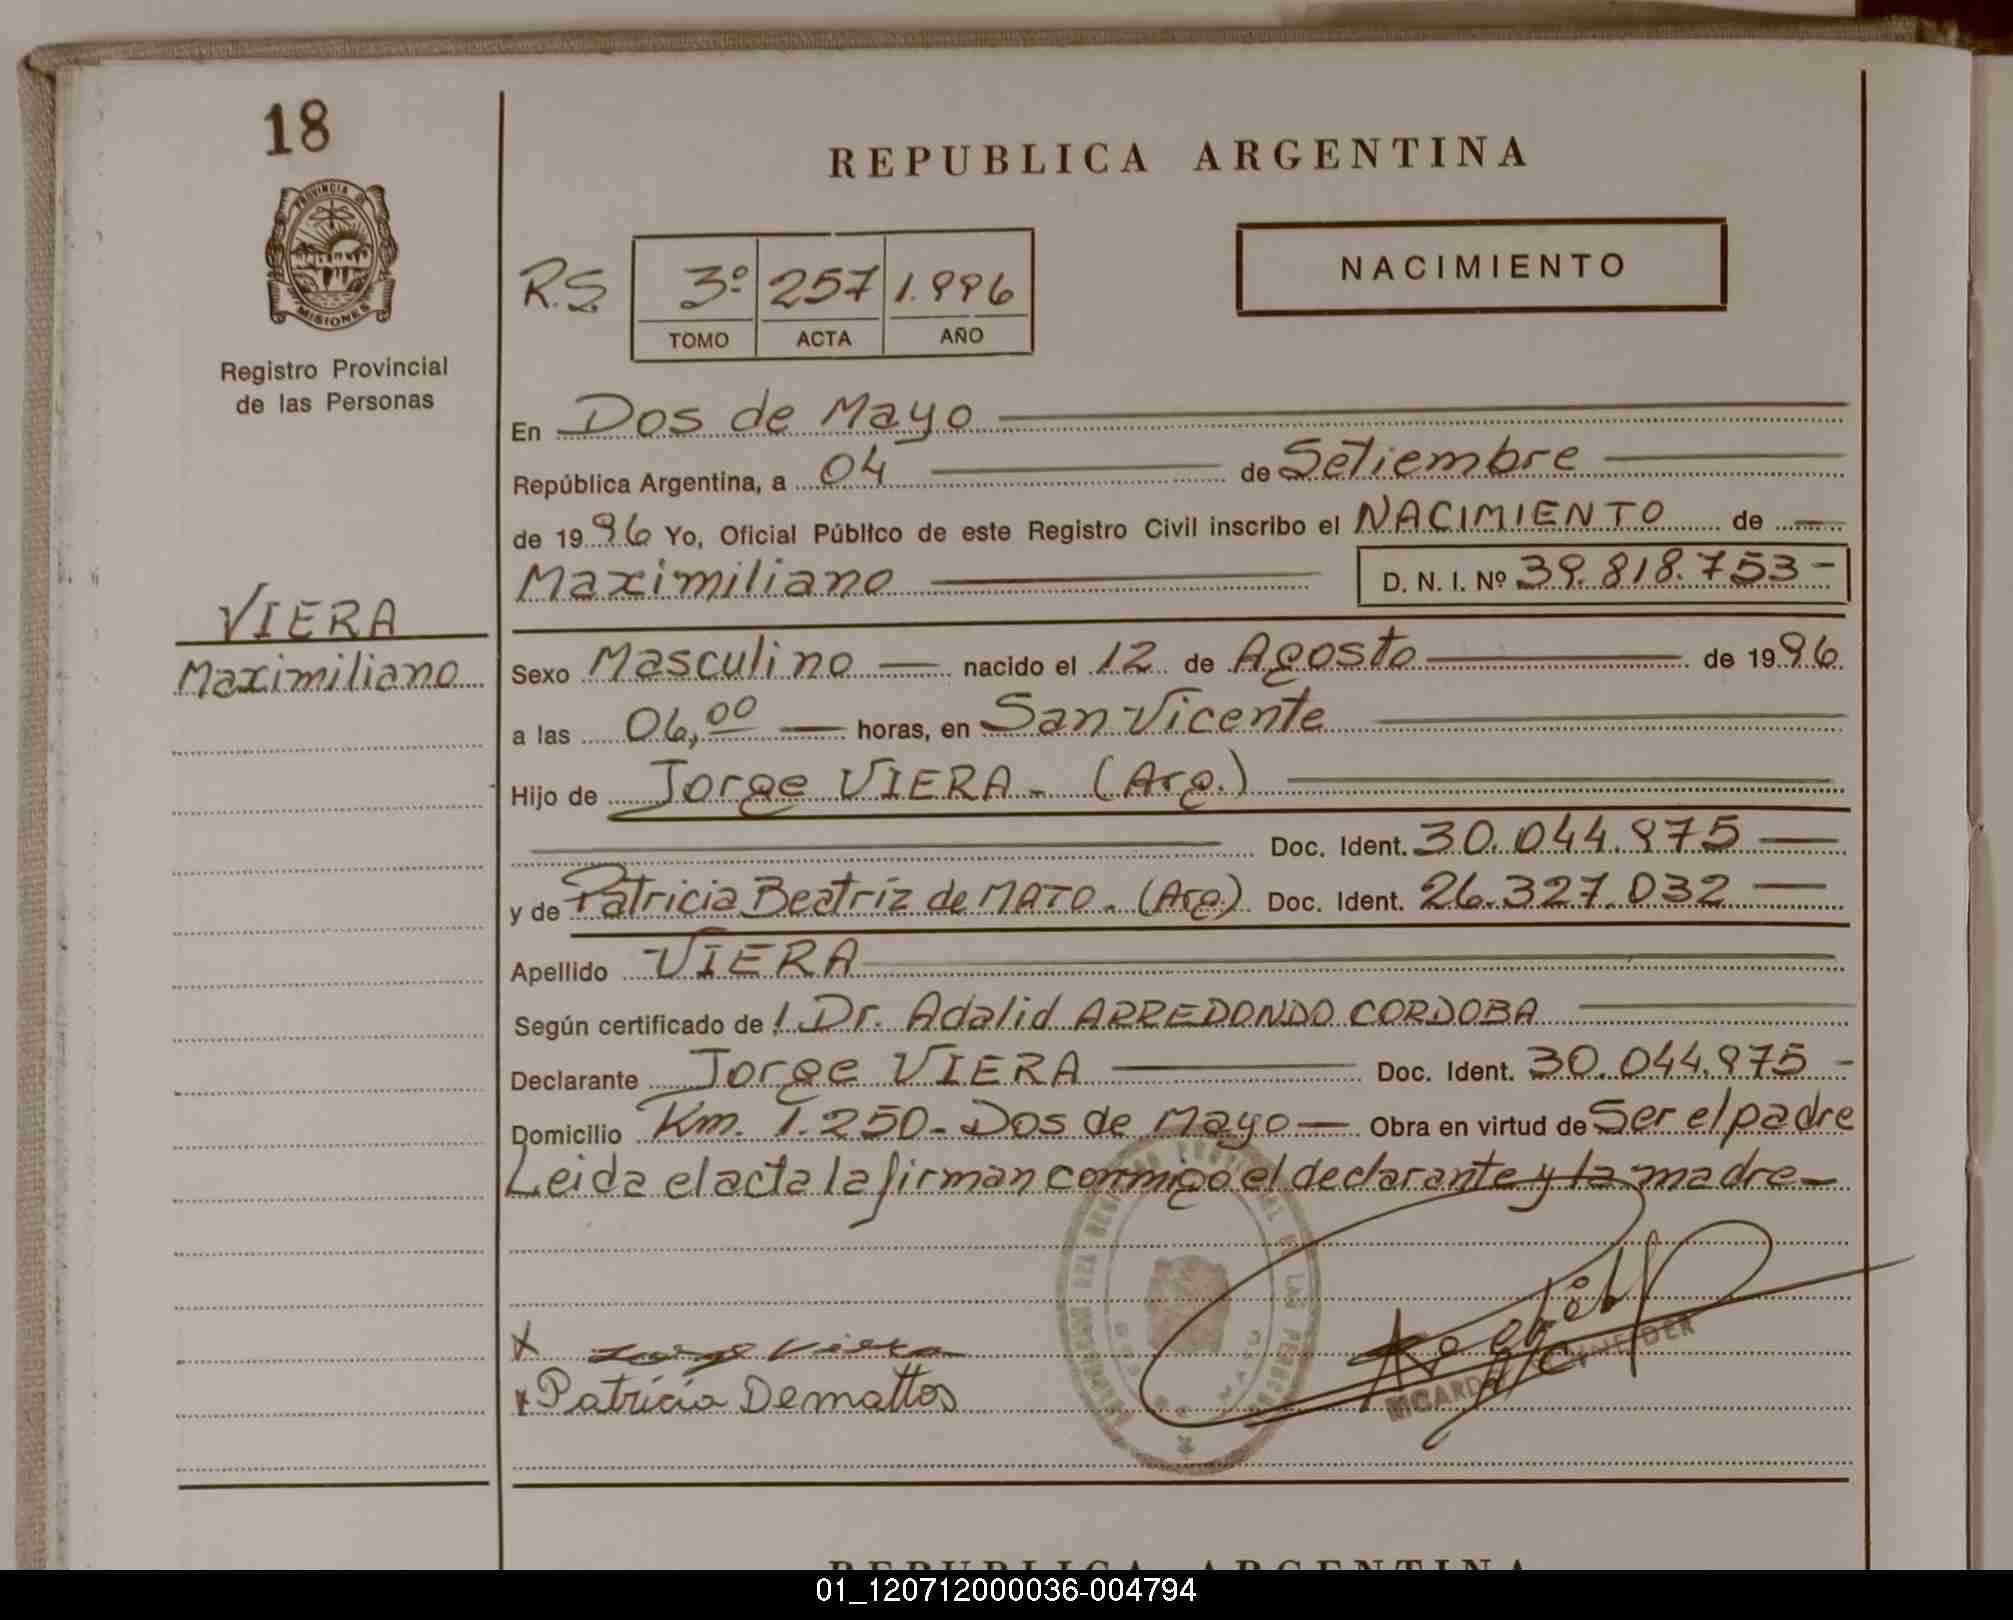 18
PROVINCIA DE
MISIONES
Registro Provincial
de las Personas
VIERA
Maximiliano
REPUBLICA ARGENTINA
NACIMIENTO
R.S. 3º 257 1.996
TOMO ACTA AÑO
En Dos de Mayo
República Argentina, a 04 de Setiembre
de 1996 Yo, Oficial Público de este Registro Civil inscribo el NACIMIENTO de
Maximiliano D. N. I. Nº 39.818.753-
Sexo Masculino nacido el 12 de Agosto de 1996
a las 06,00 horas, en San Vicente
Hijo de Jorge VIERA - (Arg.)
Doc. Ident. 30.044.975
y de Patricia Beatriz de MATO. (Arg.) Doc. Ident. 26.327.032
Apellido VIERA
Según certificado de l Dr. Adalid ARREDONDO CORDOBA
Declarante Jorge VIERA Doc. Ident. 30.044.975 -
Domicilio Km. 1.250 - Dos de Mayo Obra en virtud de Ser el padre
Leida el acta la firman conmigo el declarante y la madre
x Jorge Viera
x Patricia Demattos
REPUBLICA ARGENTINA
01_120712000036-004794